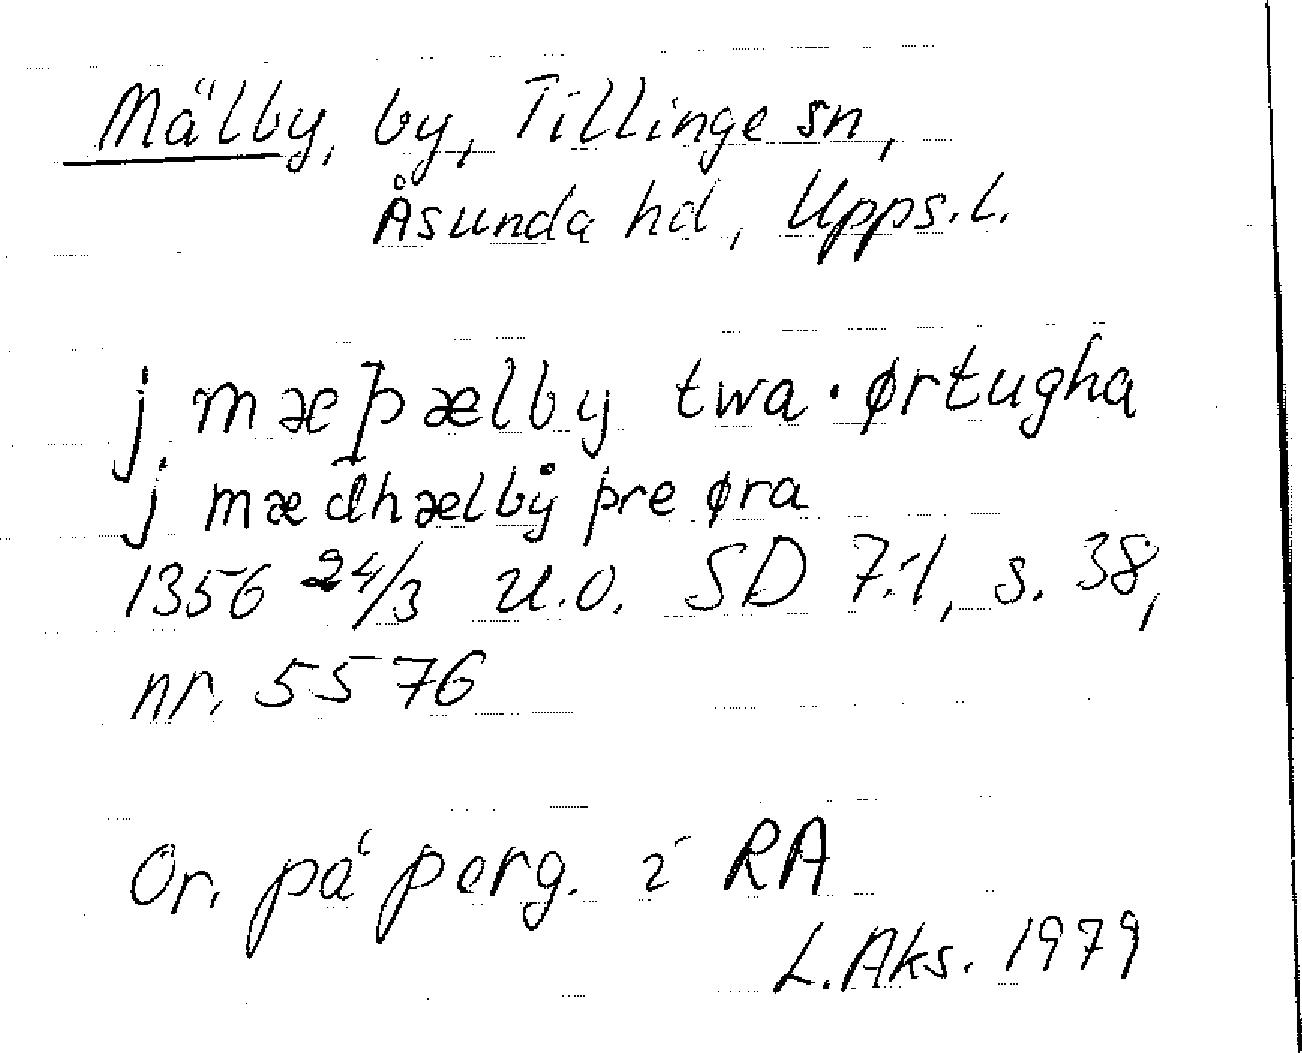 Mälby, by, Tillinge sn,
Åsunda hd, Upps. L.
j mæþælby twa · ørtugha
j mædhælbẙ þre øra
1356 24/3 u.o. SD 7:1, s. 38,
nr. 5576
Or. på perg. i RA
L. Aks. 1979